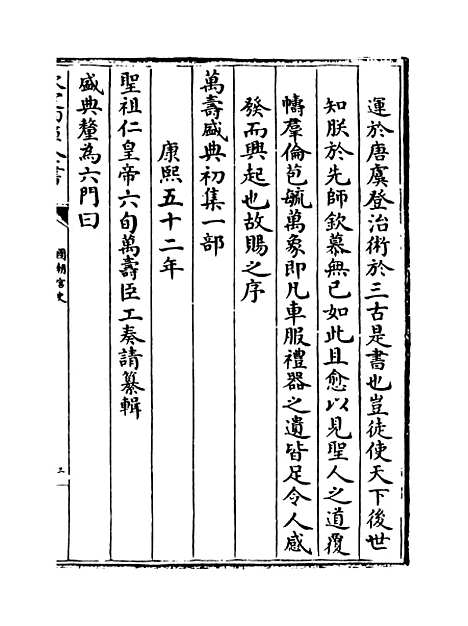 運於唐虞登治術於三古是書也豈徒使天下後世
知朕於先師欽慕無已如此且愈以見聖人之道覆
幬羣倫苞毓萬象即凡車服禮器之遺皆足令人感
發而興起也故賜之序
萬壽盛典初集一部
康熙五十二年
聖祖仁皇帝六旬萬壽臣工奏請纂輯
盛典釐為六門曰
國朝宮史